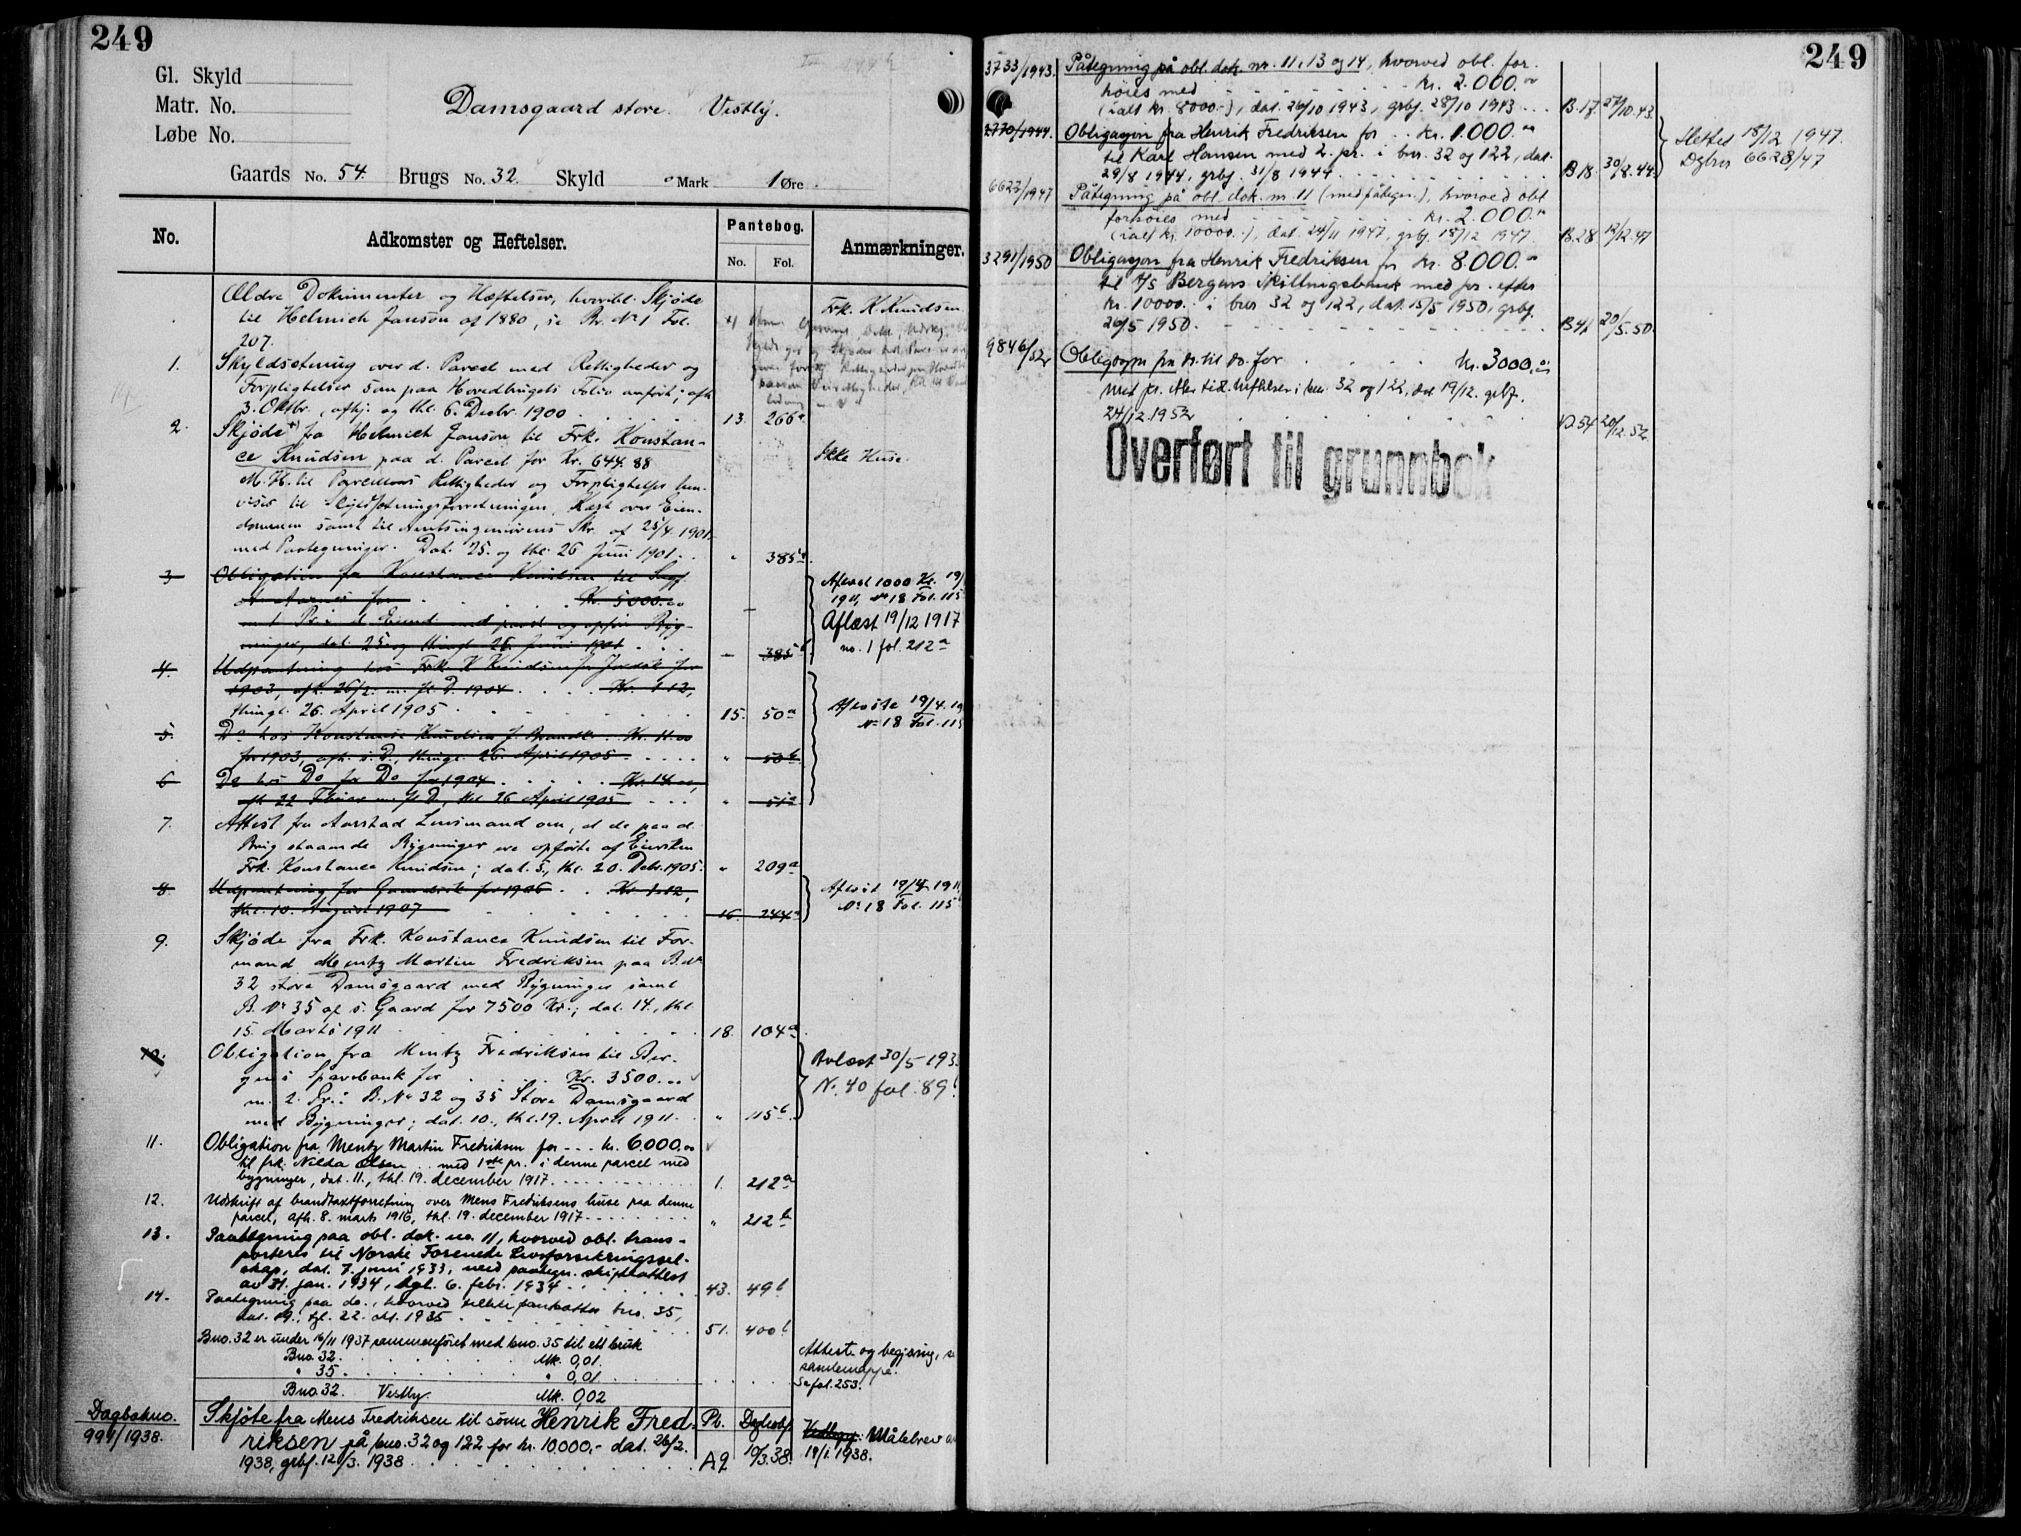 249
Gl. Skyld
Matr. No.
Løbe No.
Damsgaard store. Vestly.
Gaards No. 54. Brugs No. 32. Skyld " Mark 1 Øre
No. Adkomster og Heftelser. Pantebog. Anmærkninger.
No. Fol.
Ældre Dokumenter og Hæftelser, hvoribl. Skjøde Frk. K. Knudsen
til Helmich Janson af 1880, se Nr. 1 Fol.
207.
1. Skyldsetning over d. Parcel med Rettigheder og
Forpligtelser som paa Hovedbrugets Folio anført; afh
3. Oktbr., afhj. og thl. 6. Decbr. 1900 13. 266a
2. Skjøde fra Helmich Janson til Frk. Konstan-
ce Knudsen paa d. Parcel for Kr. 644.88 Ikke Huse.
M. H. til Parcellens Rettigheder og Forpligtelser hen-
vises til Skyldsetningsforretningen, Kart over Eien-
dommen samt til Amtsingeniørens Skr. af 25/4 1901
med Paategninger. Dat. 25. og thl. 26 Juni 1901. " 385a
3. Obligation fra Konstance Knudsen til Sagf. Afbetalt 1000 Kr. 19/
for Kr. 5000.00 1911, No 18 Fol. 115
m. 1 Pr. i d. Eiend. med paast. og opfør. Byg- Aflæst 19/12 1917
ninger, dat. 25. og thingl. 26. Juni 1901 385 no. 1 fol. 212a
4. Udpantning hos Frk. K. Knudsen for
1903, afh. 26/2 m. fl. D. 1904 Kr. 1.12,
thingl. 26. April 1905 15. 50a Aflæste 19/4 19
No 18 Fol. 115
5. Do hos Konstance Knudsen f. Kr. 11.00
for 1903, afh. s. D., thingl. 26. April 1905 " 50b
6. Do hos Do for Do for 1904 Kr. 14.00,
afh. 22 Februar m. fl. D., thl. 26 April 1905 " 51a
7. Attest fra Aarstad Lensmand om, at de paa d.
Brug staaende Bygninger ere opførte af Eiersken
Frk. Konstance Knudsen; dat. 5., thl. 20. Decbr. 1905. " 209a
8. Udpantning for for 1906 Kr. 1.12, Aflæst 19/4 1911,
thl. 10. August 1907 16. 244a No 18 Fol. 115
9. Skjøde fra Frk. Konstance Knudsen til For-
mand Mentz Martin Fredriksen paa B. No
32 store Damsgaard med Bygninger samt
B. No 35 af s. Gaard for 7500 Kr.; dat. 14., thl
15. Marts 1911 18. 104a
10. Obligation fra Mentz Fredriksen til Ber- Avlæst 30/5 193
gens Sparebank for Kr. 3500.00 No. 40 fol. 89b
m. 2. Pr. i B. No 32 og 35 Store Damsgaard
med Bygninger; dat. 10., thl. 19. April 1911. " 115b
11. Obligation fra Mentz Martin Fredriksen for kr. 6000.00
til frk. Nilda Olsen med 1ste pr. i denne parcel med
bygninger, dat. 11., thl. 19. december 1917. 1. 212a
12. Udskrift af brandtaxtforretning over Mens Fredriksens huse paa denne
parcel, afh. 8. marts 1916, thl. 19. december 1917 " 212b
13. Paategning paa obl. dok. no. 11, hvorved obl. trans-
porteres til Norske Forenede Livsforsikringssel-
skap, dat. 7. juni 1933, med paategn. skifteattest
av 31. jan. 1934, tgl. 6. febr. 1934 43. 49b
14. Paategning paa do., hvorved tillike pantsattes bno. 35,
dat. 19., tgl. 22. okt. 1935 51. 400b
Bno. 32 er under 16/11 1937 sammenføiet med bno. 35 til ett bruk
Bno. 32. Mk. 0,01 Attest og begjæring, se
" 35. " 0,01 samlemappe.
Se fol. 253.
Bno. 32. Vestby Mk. 0,02
Dagbokno. Skjøte fra Mens Fredriksen til sønn Henrik Fred- Pb. Dagbokf. Målebrev av
991/1938. riksen på bno. 32 og 122 for kr. 10.000,- dat. 26/2 19/1 1938.
1938, grbf. 12/3. 1938 A9 10/3.38.
249
3733/1943. Påtegning på obl. dok. nr. 11, 13 og 14, hvorved obl. for-
høies med kr. 2.000.00
(ialt kr. 8000.-), dat. 26/10 1943, grbf. 28/10 1943 B.17 27/10.43
2770/1944. Obligasjon fra Henrik Fredriksen for kr. 1.000.00
til Karl Hansen med 2. pr. i bnr. 32 og 122, dat.
29/8 1944, grbf. 31/8 1944 B18. 30/8.44.
Slettes 18/12 1947.
Dgbnr 6628/47
6622/1947 Påtegning på obl. dok. nr. 11 (med påtegn.), hvorved obl
forhøies med kr. 2.000.00
(ialt kr. 10000.-), dat. 24/11 1947, grbf. 18/12 1947. B.28. 12/12.47
3291/1950 Obligasjon fra Henrik Fredriksen for kr. 8.000.00
til A/S Bergens Skillingsbank med pr. efter
kr. 10000.- i bnr 32 og 122, dat. 15/5 1950, grbf.
26/5 1950. B41 20/5.50.
9846/52 Obligasjon fra do. til do. for kr. 3000,00
med pr. efter tidl. heftelser i bnr. 32 og 122, dat 19/12. grbf.
24/12.1952 D54 20/12.52.
Overført til grunnbok